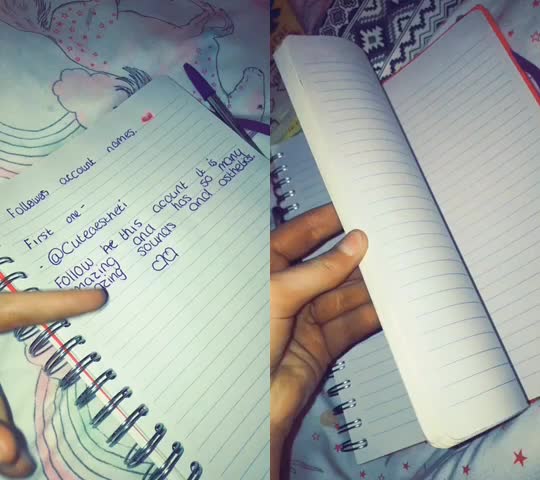 Followers account names.
First one-
- @Cuteaestheti
Follow be this acount it is
mazing and has so many
zing sounds and asthetics